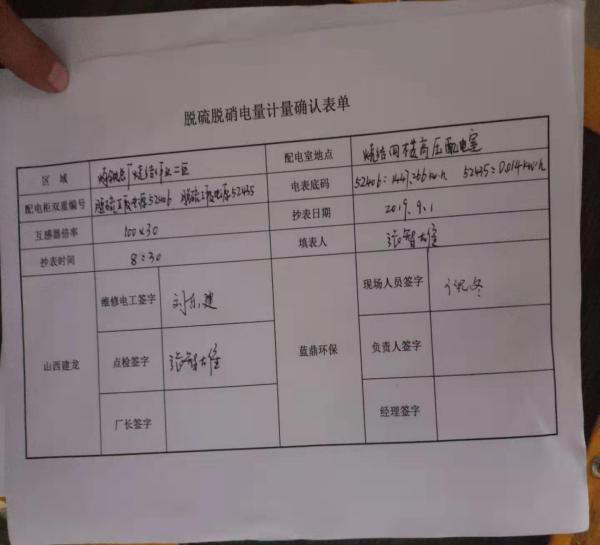 脱硫脱硝电量计量确认表单
区 域 烧结厂烧结作业二区 配电室地点 烧结四楼高压配电室
配电柜双重编号 脱硫工段电源52406 脱硫工段电源52435 电表底码 52406:1447.266kw·h 52435:0.014kw·h
互感器倍率 100×30 抄表日期 2019.9.1
抄表时间 8:30 填表人
山西建龙 维修电工签字 蓝鼎环保 现场人员签字
点检签字 负责人签字
厂长签字 经理签字